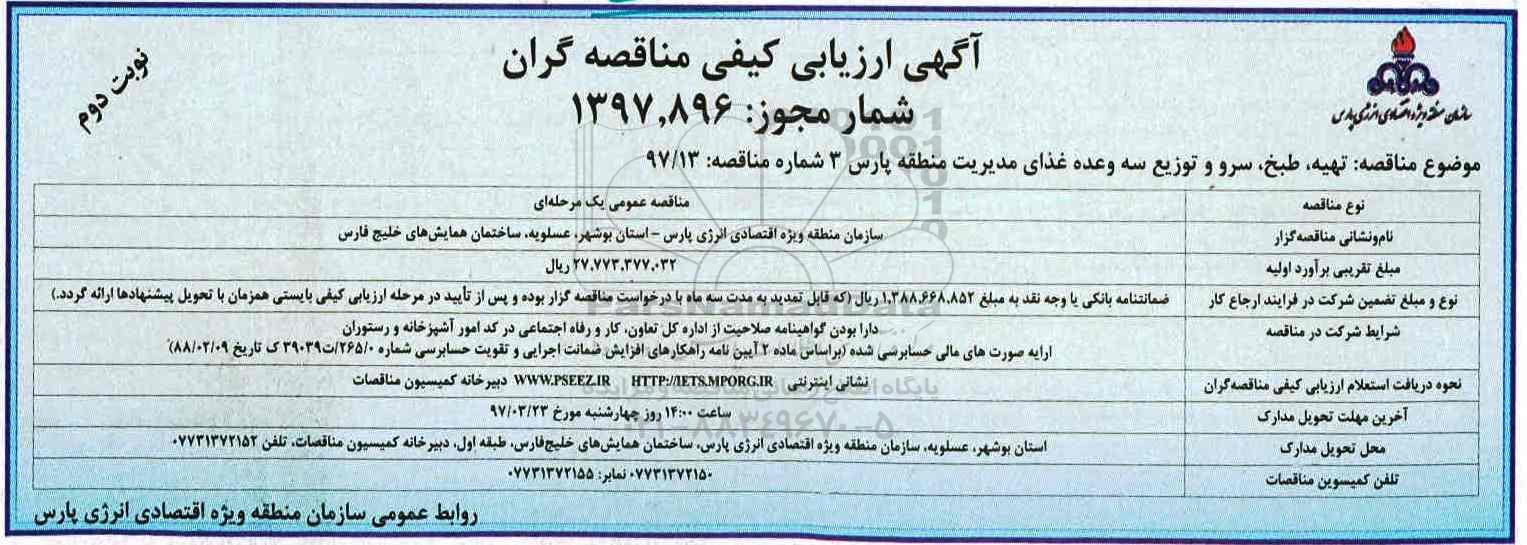 نوبت دوم
آگهی ارزیابی کیفی مناقصه گران
شمار مجوز: ۱۳۹۷,۸۹۶
سازمان منطقه ویژه اقتصادی انرژی پارس
موضوع مناقصه: تهیه، طبخ، سرو و توزیع سه وعده غذای مدیریت منطقه پارس ۳ شماره مناقصه: ۹۷/۱۳
نوع مناقصه مناقصه عمومی یک مرحله‌ای
نام‌ونشانی مناقصه‌گزار سازمان منطقه ویژه اقتصادی انرژی پارس - استان بوشهر، عسلویه، ساختمان همایش‌های خلیج فارس
مبلغ تقریبی برآورد اولیه ۲۷,۷۷۳,۳۷۷,۰۳۲ ریال
نوع و مبلغ تضمین شرکت در فرایند ارجاع کار ضمانتنامه بانکی یا وجه نقد به مبلغ ۱,۳۸۸,۶۶۸,۸۵۲ ریال (که قابل تمدید به مدت سه ماه با درخواست مناقصه گزار بوده و پس از تأیید در مرحله ارزیابی کیفی بایستی همزمان با تحویل پیشنهادها ارائه گردد.)
شرایط شرکت در مناقصه دارا بودن گواهینامه صلاحیت از اداره کل تعاون، کار و رفاه اجتماعی در کد امور آشپزخانه و رستوران
ارایه صورت های مالی حسابرسی شده (براساس ماده ۲ آیین نامه راهکارهای افزایش ضمانت اجرایی و تقویت حسابرسی شماره ۲۶۵/۰/ت۳۹۰۳۹ ک تاریخ ۸۸/۰۲/۰۹)
نحوه دریافت استعلام ارزیابی کیفی مناقصه‌گران نشانی اینترنتی HTTP://IETS.MPORG.IR WWW.PSEEZ.IR دبیرخانه کمیسیون مناقصات
آخرین مهلت تحویل مدارک ساعت ۱۴:۰۰ روز چهارشنبه مورخ ۹۷/۰۳/۲۳
محل تحویل مدارک استان بوشهر، عسلویه، سازمان منطقه ویژه اقتصادی انرژی پارس، ساختمان همایش‌های خلیج‌فارس، طبقه اول، دبیرخانه کمیسیون مناقصات، تلفن ۰۷۷۳۱۳۷۲۱۵۲
تلفن کمیسوین مناقصات ۰۷۷۳۱۳۷۲۱۵۰ نمابر: ۰۷۷۳۱۳۷۲۱۵۵
روابط عمومی سازمان منطقه ویژه اقتصادی انرژی پارس
ParsNamadData
پایگاه اطلاع رسانی مناقصه و مزایده
۰۲۱-۸۸۳۴۹۶۷۰-۵